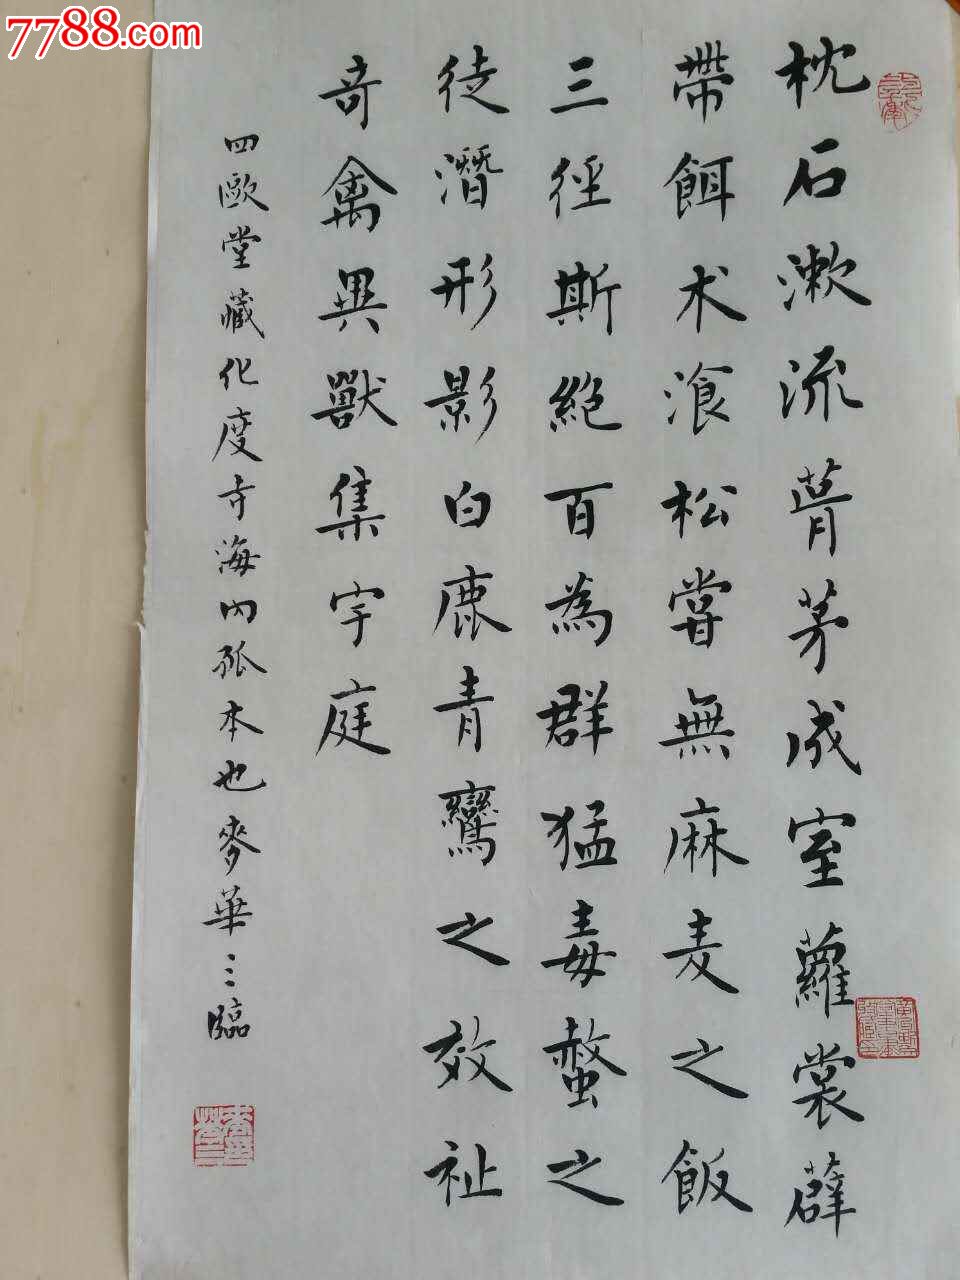 7788.com
枕石漱流葺茅成室蘿裳薜
帶餌术飡松嘗無麻麦之飯
三徑斯絕百為群猛毒螫之
徒潛形影白鹿青鸞之效祉
奇禽異獸集宇庭
四歐堂藏化度寺海内孤本也麥華三臨
麥華三